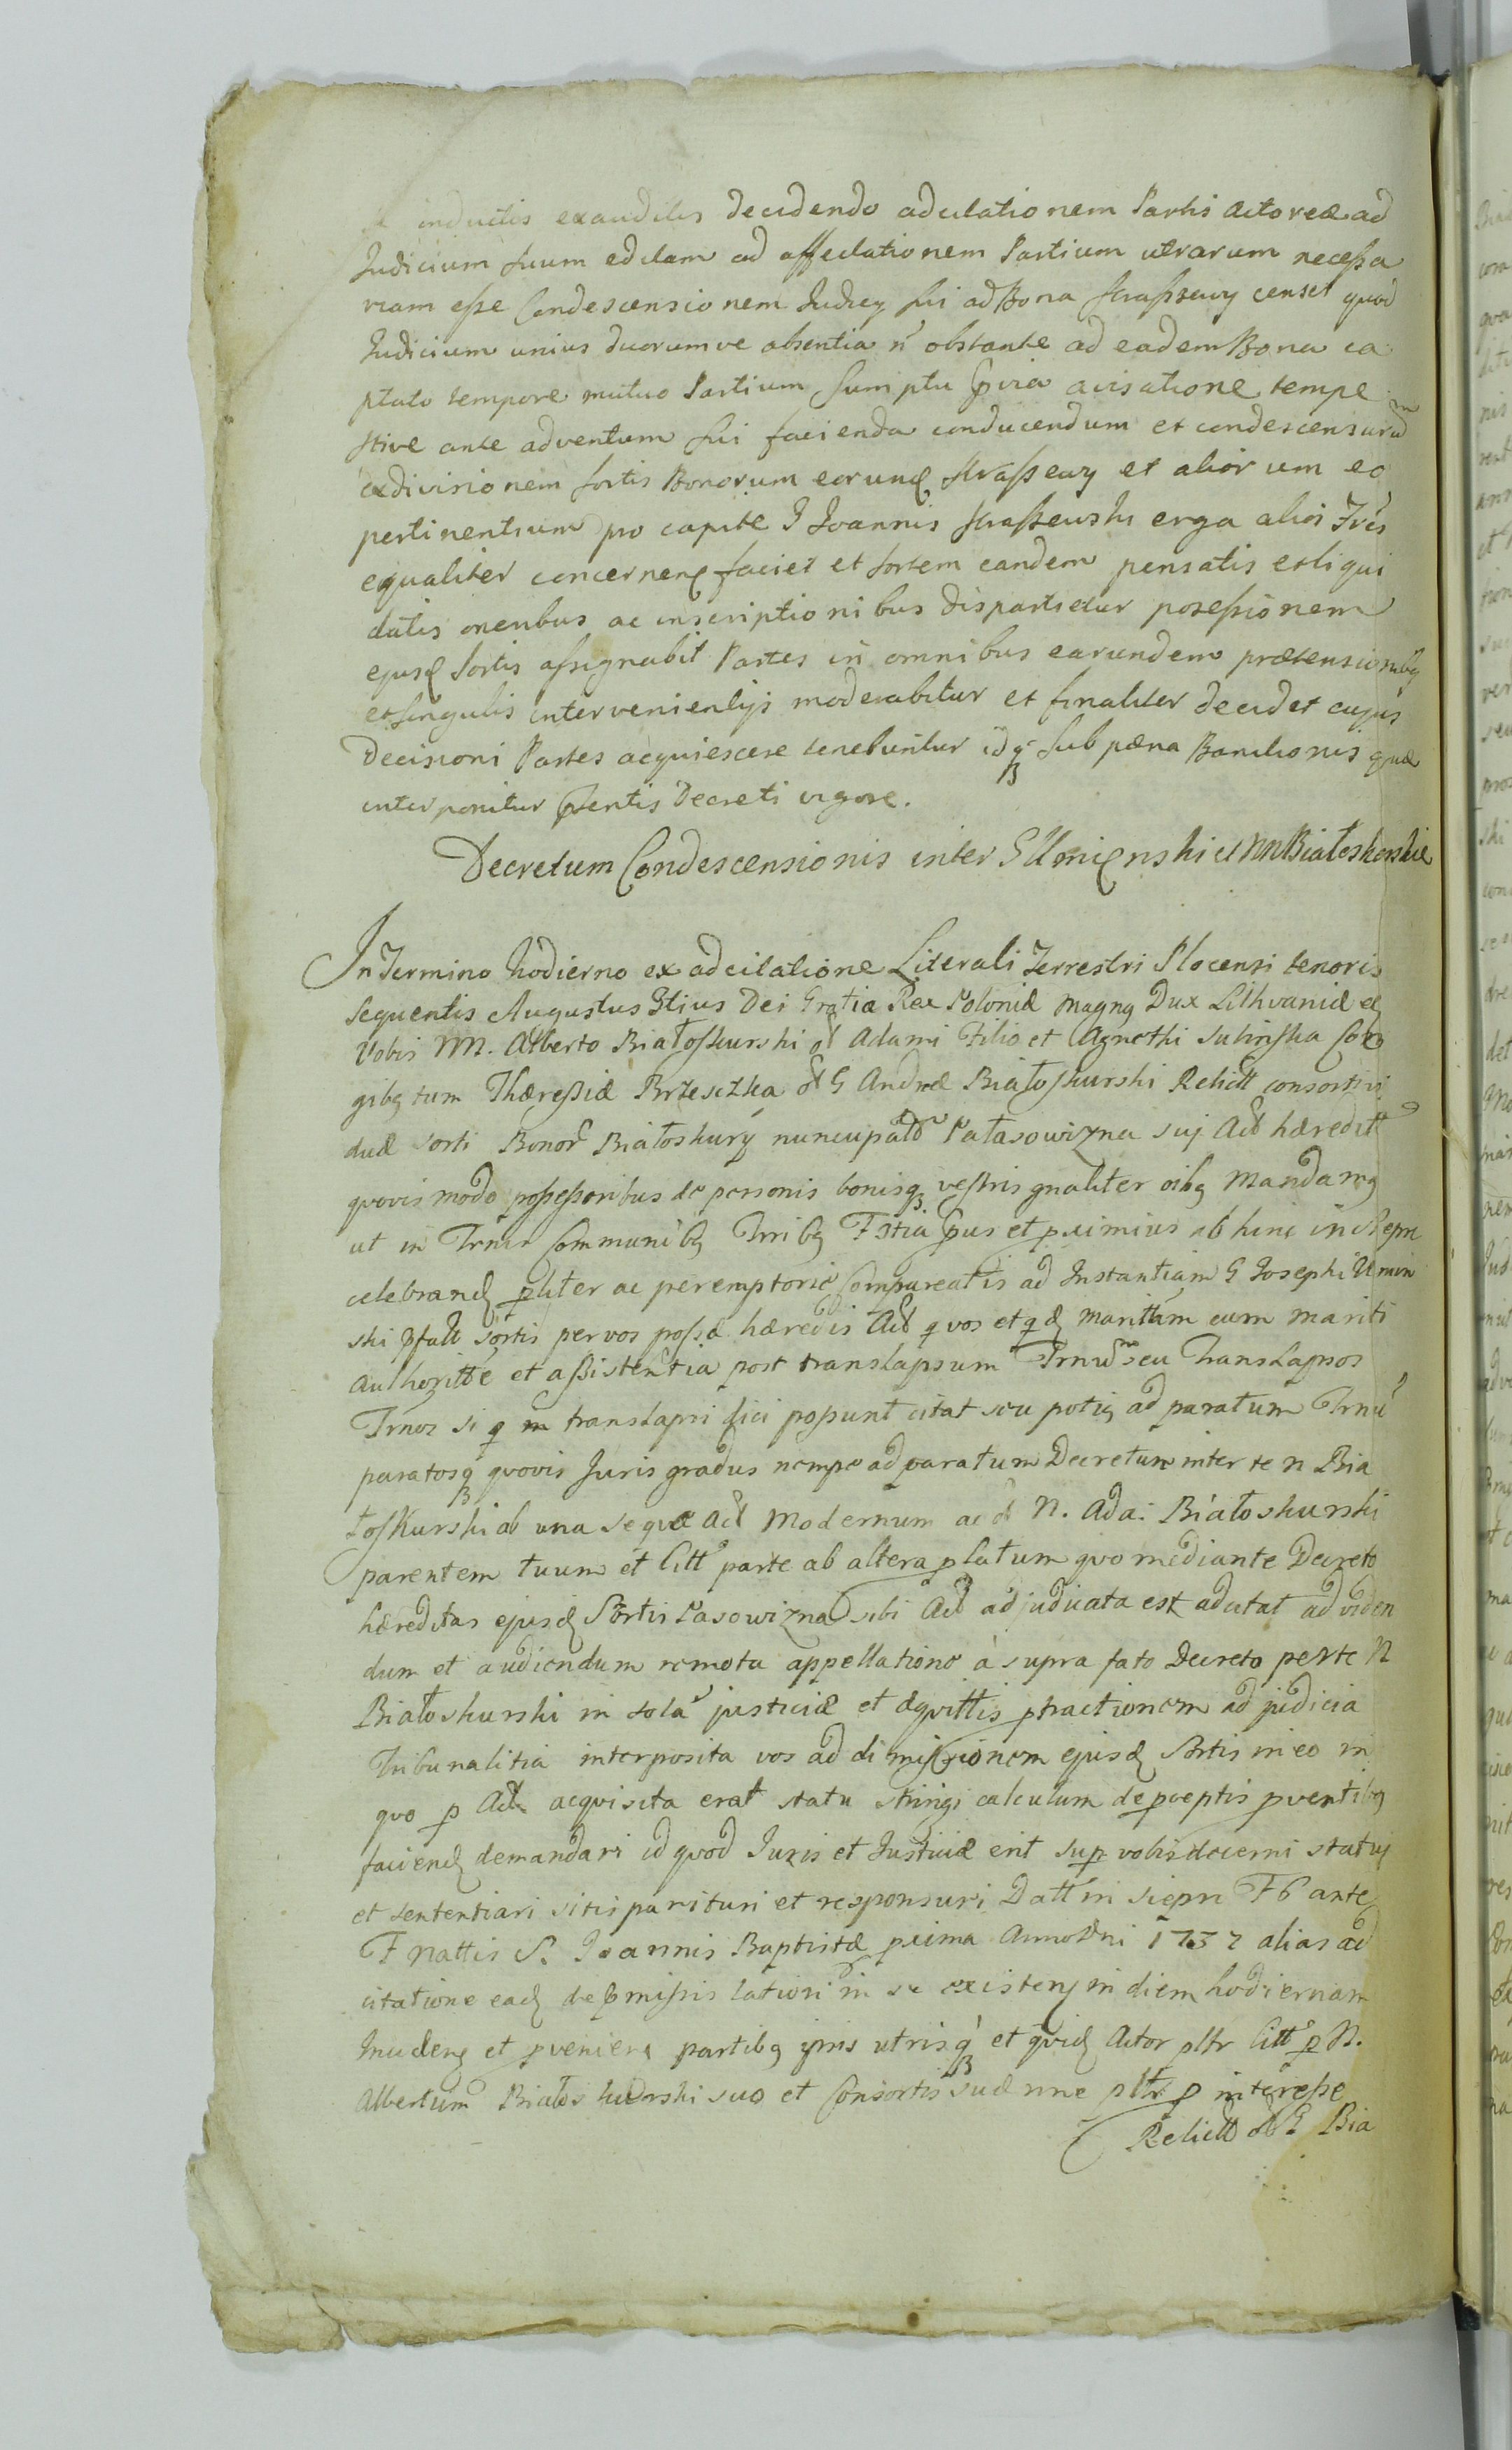 inductis exauditis decidendo adcitationem Partis Actoreæ ad
Judicium suum editam ad affectationem Partium utrarum necessa
riam esse Condescensionem Judicy sui ad Bona Krassewy censet quod
Judicium unius duorumve absentia n obstante ad eadem Bona ca
ptato tempore mutuo Partium sumptu pvia avisatione tempe
stive ante adventum sui facienda conducendum et condescensurum
exdivisionem sortis Bonorum eorund Krassewy et aliorum eo
pertinentium pro capite J Joannis Krassewski erga alios Fres
equaliter concernen faciet et sortem eandem pensatis et liqui
datis oneribus ac inscriptionibus dispartietur possessionem
ejusd sortis assignabit Partes in omnibus earundem prætensionibq
et singulis intervenientijs moderabitur et finaliter decidet cujus
Decisioni Partes acquiescere tenebuntur idq sub pæna Bannitionis quæ
interponitur psentis Decreti vigore.
Decretum Condescensionis inter G Umięnski et NN Białoskorskie
In Termino hodierno ex adcitatione Literali Terrestri Plocensi tenoris
sequentis Augustus 3tius Dei Gratia Rex Poloniæ Magnq Dux Lithvaniæ etc
Vobis NN. Alberto Białoskurski ol Adami Filio et Agnethi Con
gibq tum Thæressiæ Brzesczka ol G Andreæ Białoskurski Relictt consorti vi
duæ sorti Bonor Białoskury nuncupatt Pałasowizna suj Act hæreditt
quovis modo possessoribus de personis bonisq vestris gnaliter oibq Mandamq
ut in Trnis Communibq Trribq F 3tia pus et pximius ab hinc in Siepn
celebrand pliter ac peremptorie Compareatis ad Instantiam G Josephi Umin
ski pfatt sortis per vos possæ hæredis Act q vos et qd marittam cum mariti
authoritte et assistentia post translapsum Trnum seu Translapsos
Trnos si q m translapsi dici possunt citat seu potiq ad paratum Trnu
paratosq quovis Juris gradus nempe ad paratum Decretum inter te N Bia
łoskurski ab una seque Act Modernum ac ol N. Ada: Białoskurski
parentem tuum et Citt parte ab altera platum quo mediante Decreto
hæreditas ejusd Sortis Pasowizna sibi Act adjudicata est adcitat ad viden
dum et audiendum remota appellatione à supra fato Decreto per te N
Białoskurski in sola justiciæ et æquittis ptractionem ad judicia
Tribunalitia interposita vos ad dimissionem ejusd Sortis in eo in
quo p Act acquisita erat statu stringi calculum de pceptis pventibq
faciend demandari id quod Juris et Justiciæ erit sup vobis decerni statuj
et sententiari sitis parituri et responsuri Datt in Siepn F 6 ante
F nattis S. Joannis Baptistæ pxima Anno Dni 1737 alias ad
citatione ead de pmissis latiori in se existen in diem hodiernam
Inciden et pvenien partibq ipsis utrisq et quid Actor pltr Citt p N.
Albertum Białoskurski suo et Consortis suæ nne pltr p interesse
Relictt ol G Bia